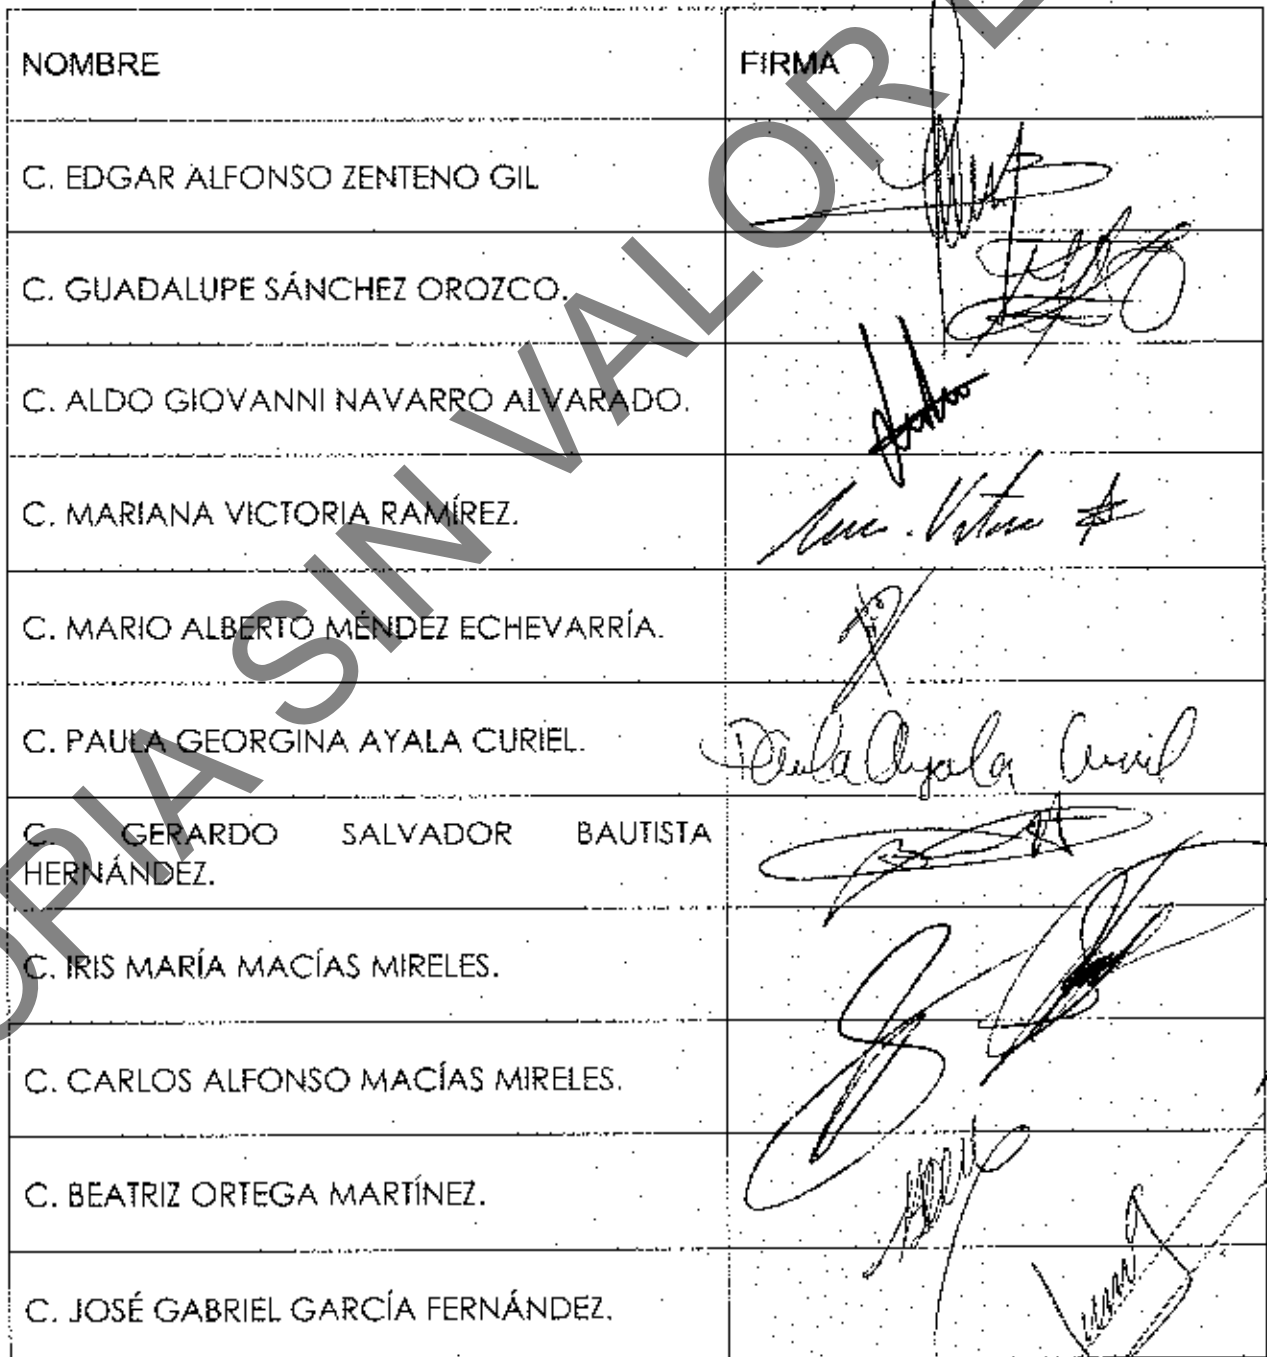 NOMBRE FIRMA
C. EDGAR ALFONSO ZENTENO GIL
C. GUADALUPE SÁNCHEZ OROZCO.
C. ALDO GIOVANNI NAVARRO ALVARADO.
C. MARIANA VICTORIA RAMÍREZ.
C. MARIO ALBERTO MÉNDEZ ECHEVARRÍA.
C. PAULA GEORGINA AYALA CURIEL. Paula Ayala Curiel
C. GERARDO SALVADOR BAUTISTA
HERNÁNDEZ.
C. IRIS MARÍA MACÍAS MIRELES.
C. CARLOS ALFONSO MACÍAS MIRELES.
C. BEATRIZ ORTEGA MARTÍNEZ.
C. JOSÉ GABRIEL GARCÍA FERNÁNDEZ.
OPIA SIN VALOR